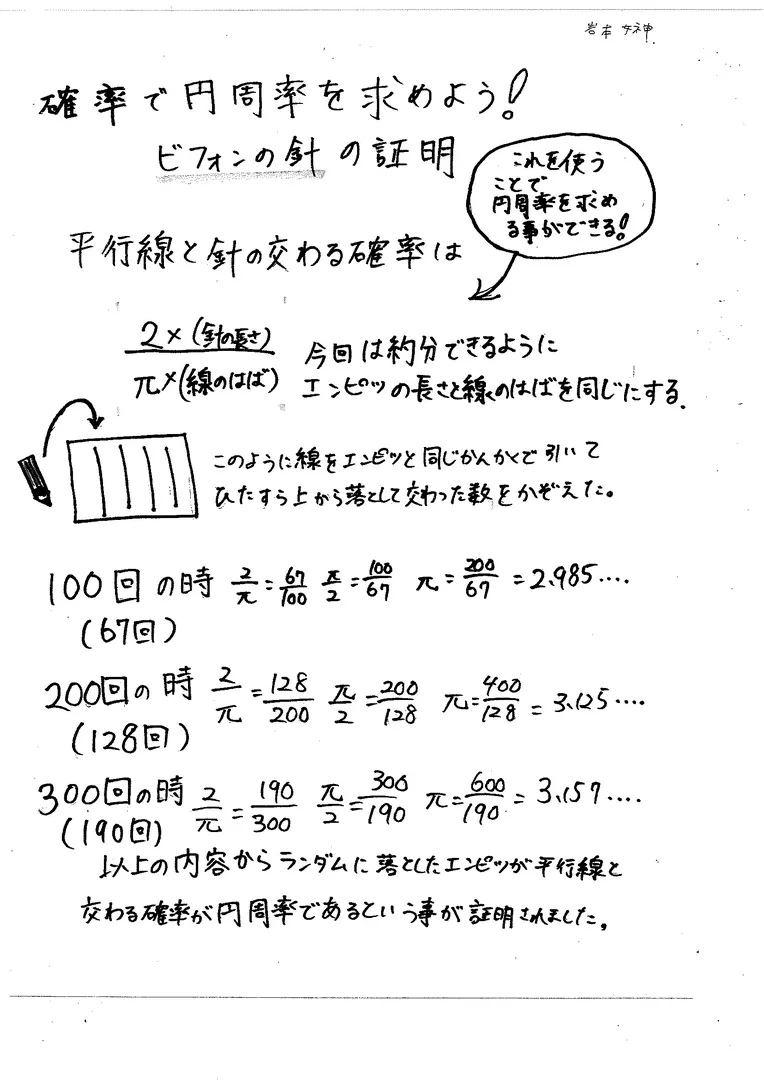 岩本 女神
確率で円周率を求めよう!
ビフォンの針の証明
これを使う
ことで
円周率を求め
る事ができる!
平行線と針の交わる確率は
2×(針の長さ)
π×(線のはば)
今回は約分できるように
エンピツの長さと線のはばを同じにする.
このように線をエンピツと同じかんかくで引いて
ひたすら上から落として交わった数をかぞえた。
100回の時 2/π=67/100 π/2=100/67 π=200/67=2.985‥‥
(67回)
200回の時 2/π=128/200 π/2=200/128 π=400/128=3.125‥‥
(128回)
300回の時 2/π=190/300 π/2=300/190 π=600/190=3.157‥‥
(190回)
以上の内容からランダムに落としたエンピツが平行線と
交わる確率が円周率であるという事が証明されました。